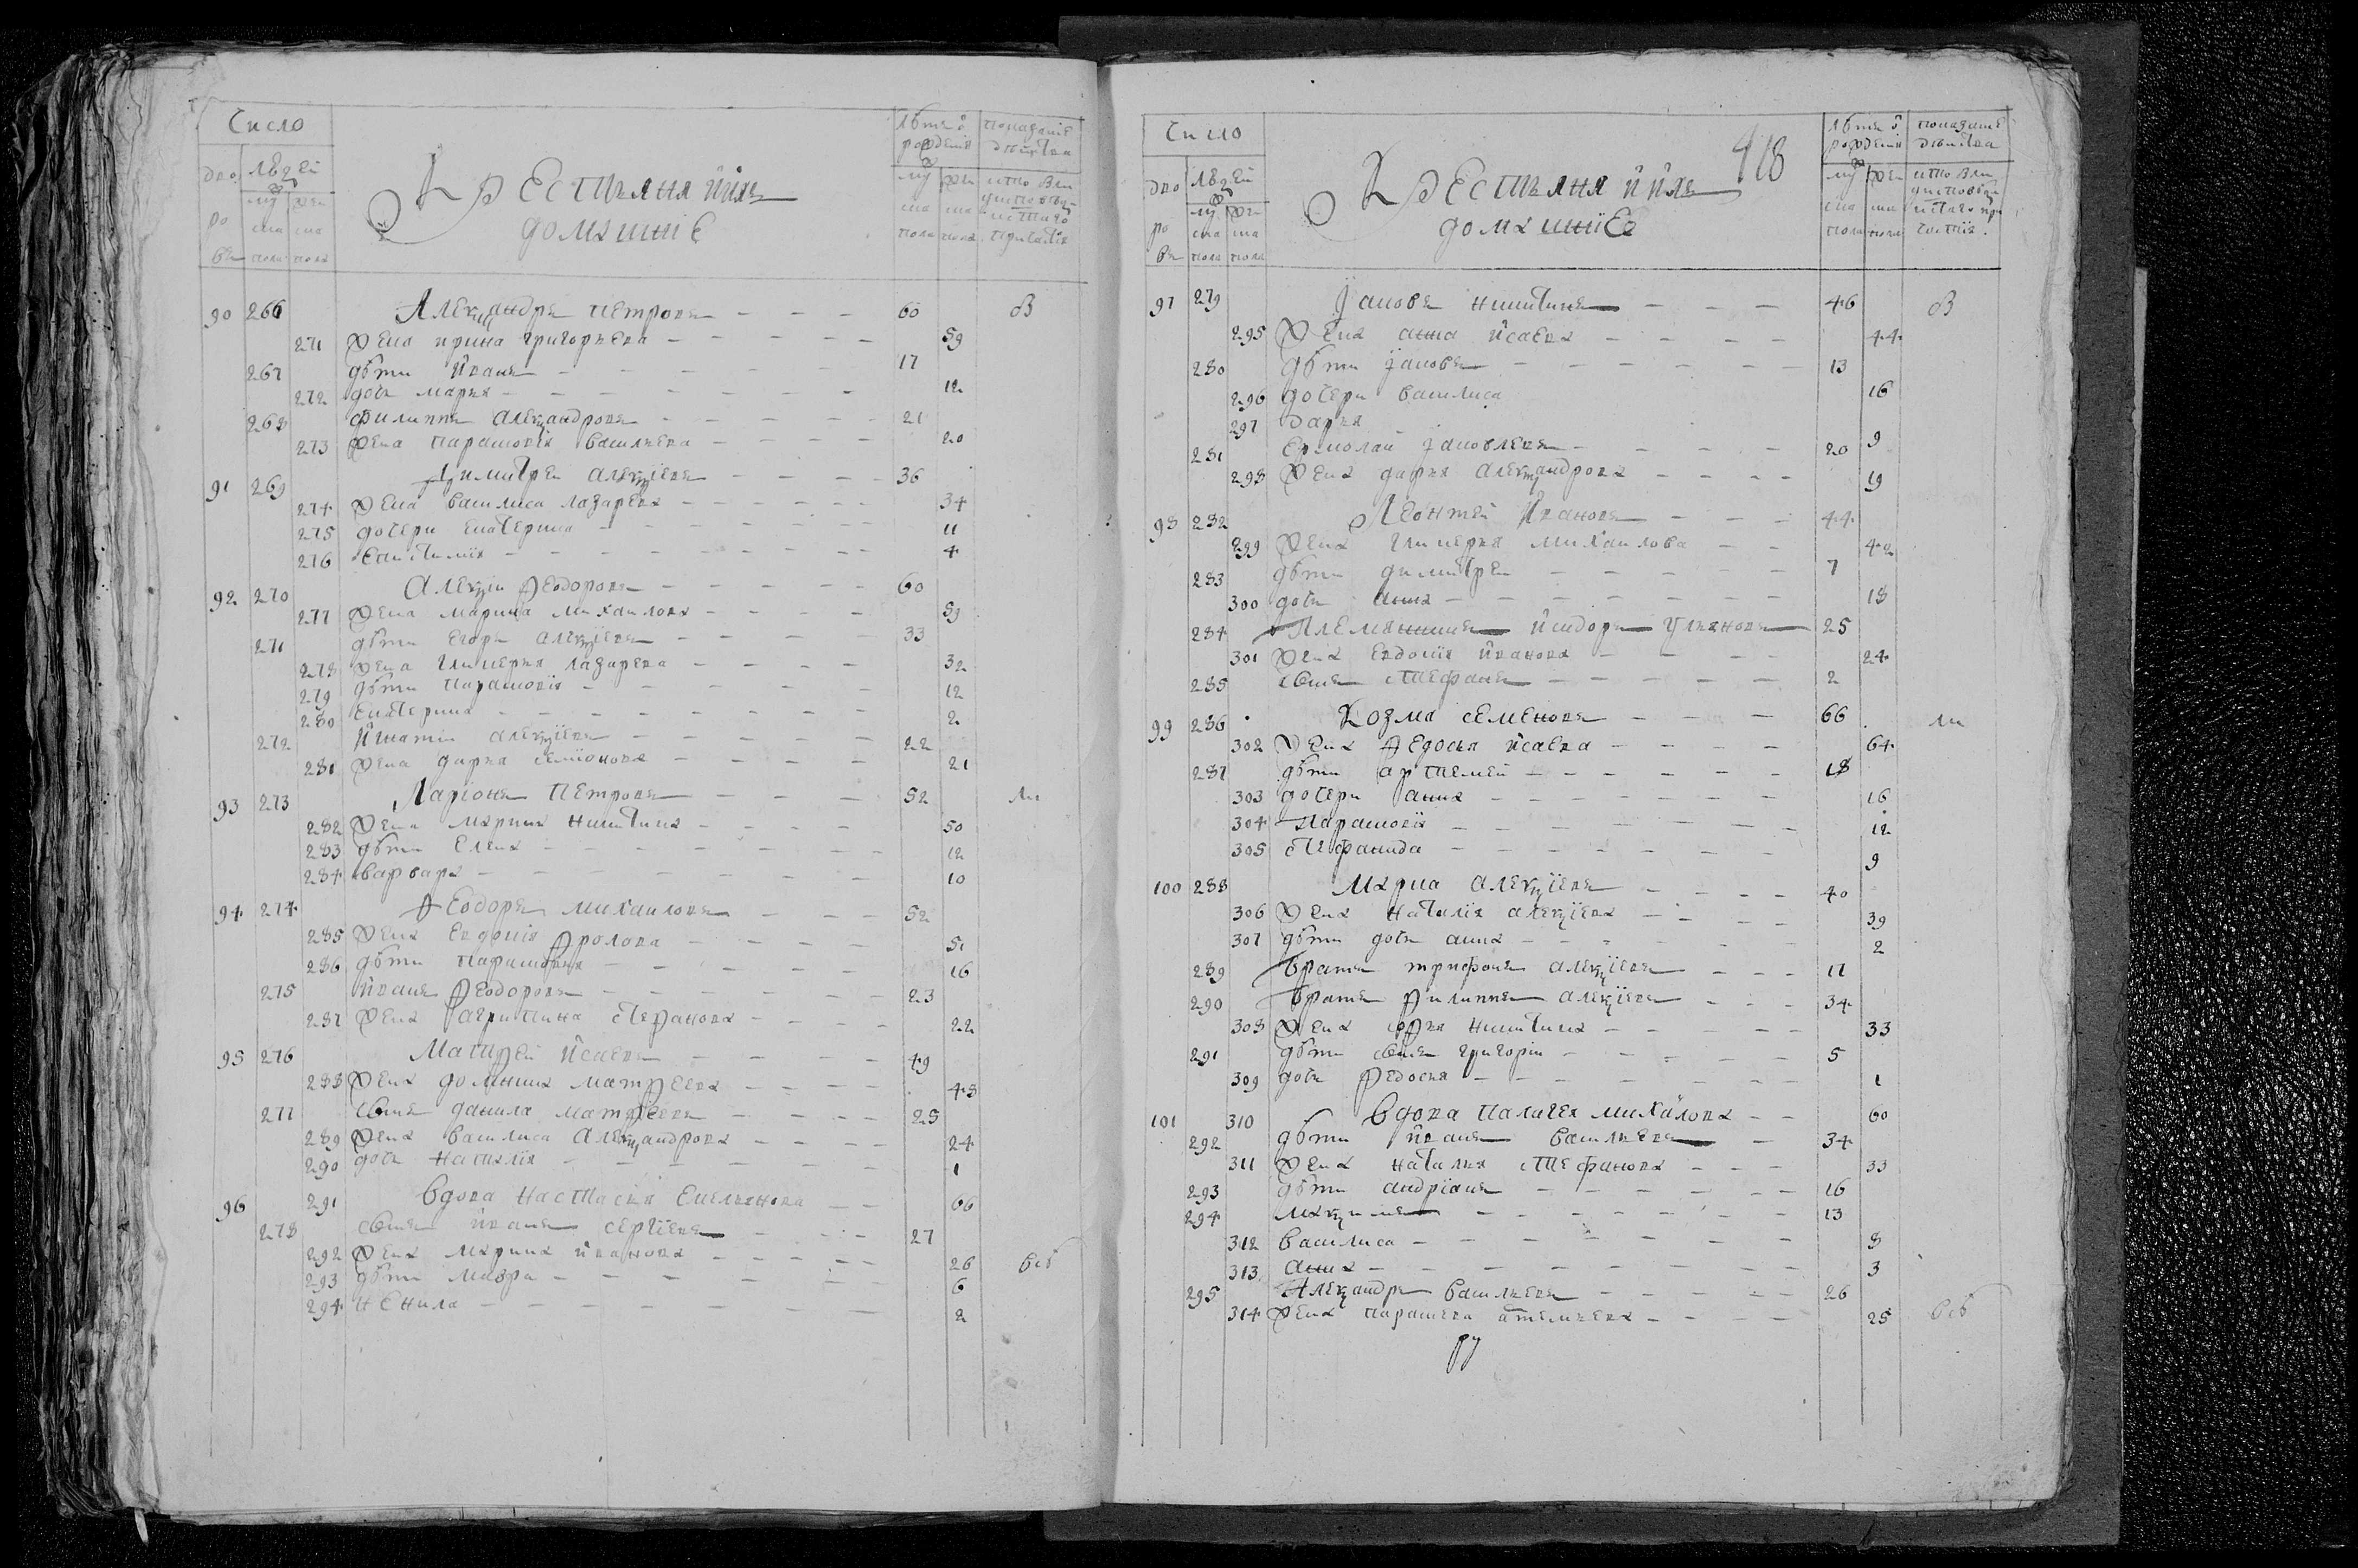 Число
Дво ро въ
Людей
му ска пола
жен ска пола
Крестьяня и ихъ
домашние
Лѣта ѿ рождения
му ска пола
жен ска пола
показание действа
90 266 Алекѯандръ Петровъ 60 в
271 Жена Ирина Григорьева 59
267 дѣти Иванъ 17
272 дочь Марья 12
268 Филиппъ Алекѯандровъ 21
273 Жена Парасковія Васильева 20
91 269 Димитрей Алекѯіевъ 36
274 Жена Василиса Лазарева 34
275 дочери Екатерина 11
276 4
92 270 Алекѯій Ѳеодоровъ 60
277 Жена Марина Михаилова 59
271 дѣти Егоръ Алекѯіевъ 33
278 Жена Гликерья Лазарева 32
279 дѣти Парасковія 12
280 Екатерина 2
272 Игнатій Алекѯіевъ 22
281 Жена Дарья Семіонова 21
93 273 Ларіонъ Петровъ 52
282 Жена Марина Никитина 50
283 дѣти Елена 12
284 Варвара 10
94 274 Ѳеодоръ Михаиловъ 52
285 Жена Евдокія Фролова 51
286 дѣти Парасковья 16
275 Иванъ Ѳеодоровъ 23
287 Жена Агрипина Стефанова 22
95 276 Матфей Исаевъ 49
288 Жена Домника Матфеева 48
277 сынъ Данила Матфеевъ 25
289 Жена Василиса Алекѯандрова 24
290 дочь Наталія 1
96 291 Вдова Настасья Емельянова 66
278 сынъ Иванъ Сергіевъ 27
292 Жена Марина Иванова 26 всѣ
293 дѣти Мавра 6
294 Ненила 2
418
Число
Дво ро въ
Людей
му ска пола
жен ска пола
Крестьяня и ихъ
домашніе
Лѣта ѿ рождения
му ска пола
жен ска пола
показание действа
97 279 Іаковъ Никитинъ 46 в
295 Жена Анна Исаева 44
280 дѣти Іаковъ 13
296 дочери Василиса 16
297 Дарья 9
281 Ермолай Іаковлевъ 20
298 Жена Дарья Алекѯандрова 19
98 282 Леонтей Ивановъ 44
299 Жена Гликерья Михаилова 42
283 дѣти Димитрей 7
300 дочь Анна 18
284 Племянникъ Исидоръ Ульяновъ 25
301 Жена Евдокія Иванова 24
285 сынъ Стефанъ 2
99 286 Козма Семеновъ 66
302 Жена Ѳедосья Исаева 64
287 дѣти Артемей 18
303 дочери Анна 16
304 Парасковія 12
305 Стефанида 9
100 288 Марка Алекѯіевъ 40
306 Жена Наталія Алекѯіева 39
307 дѣти дочь Анна 2
289 братъ Трифонъ Алекѯіевъ 17
290 братъ Филиппъ Алекѯіевъ 34
308 Жена Софья Никитина 33
291 дѣти сынъ Григорій 5
309 дочь Ѳедосья 1
101 310 Вдова Палагея Михаилова 60
292 дѣти Иванъ Васильевъ 34
311 Жена Наталья Стефанова 33
293 дѣти Андріанъ 16
294 Макѯимъ 13
312 Василиса 8
313 Анна 3
295 Алекѯандръ Васильевъ 26
314 Жена 25 всѣ
ру